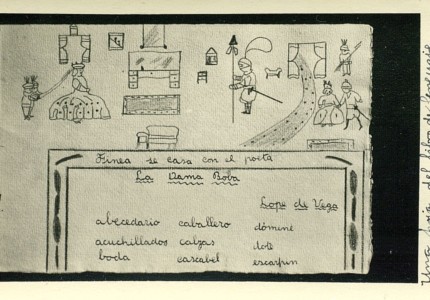 Finea se casa con el poeta
La Dama Boba
Lope de Vega
abecedario caballero dómine
acuchillados calzas dote
boda cascabel escarpin
Una hoja del libro de